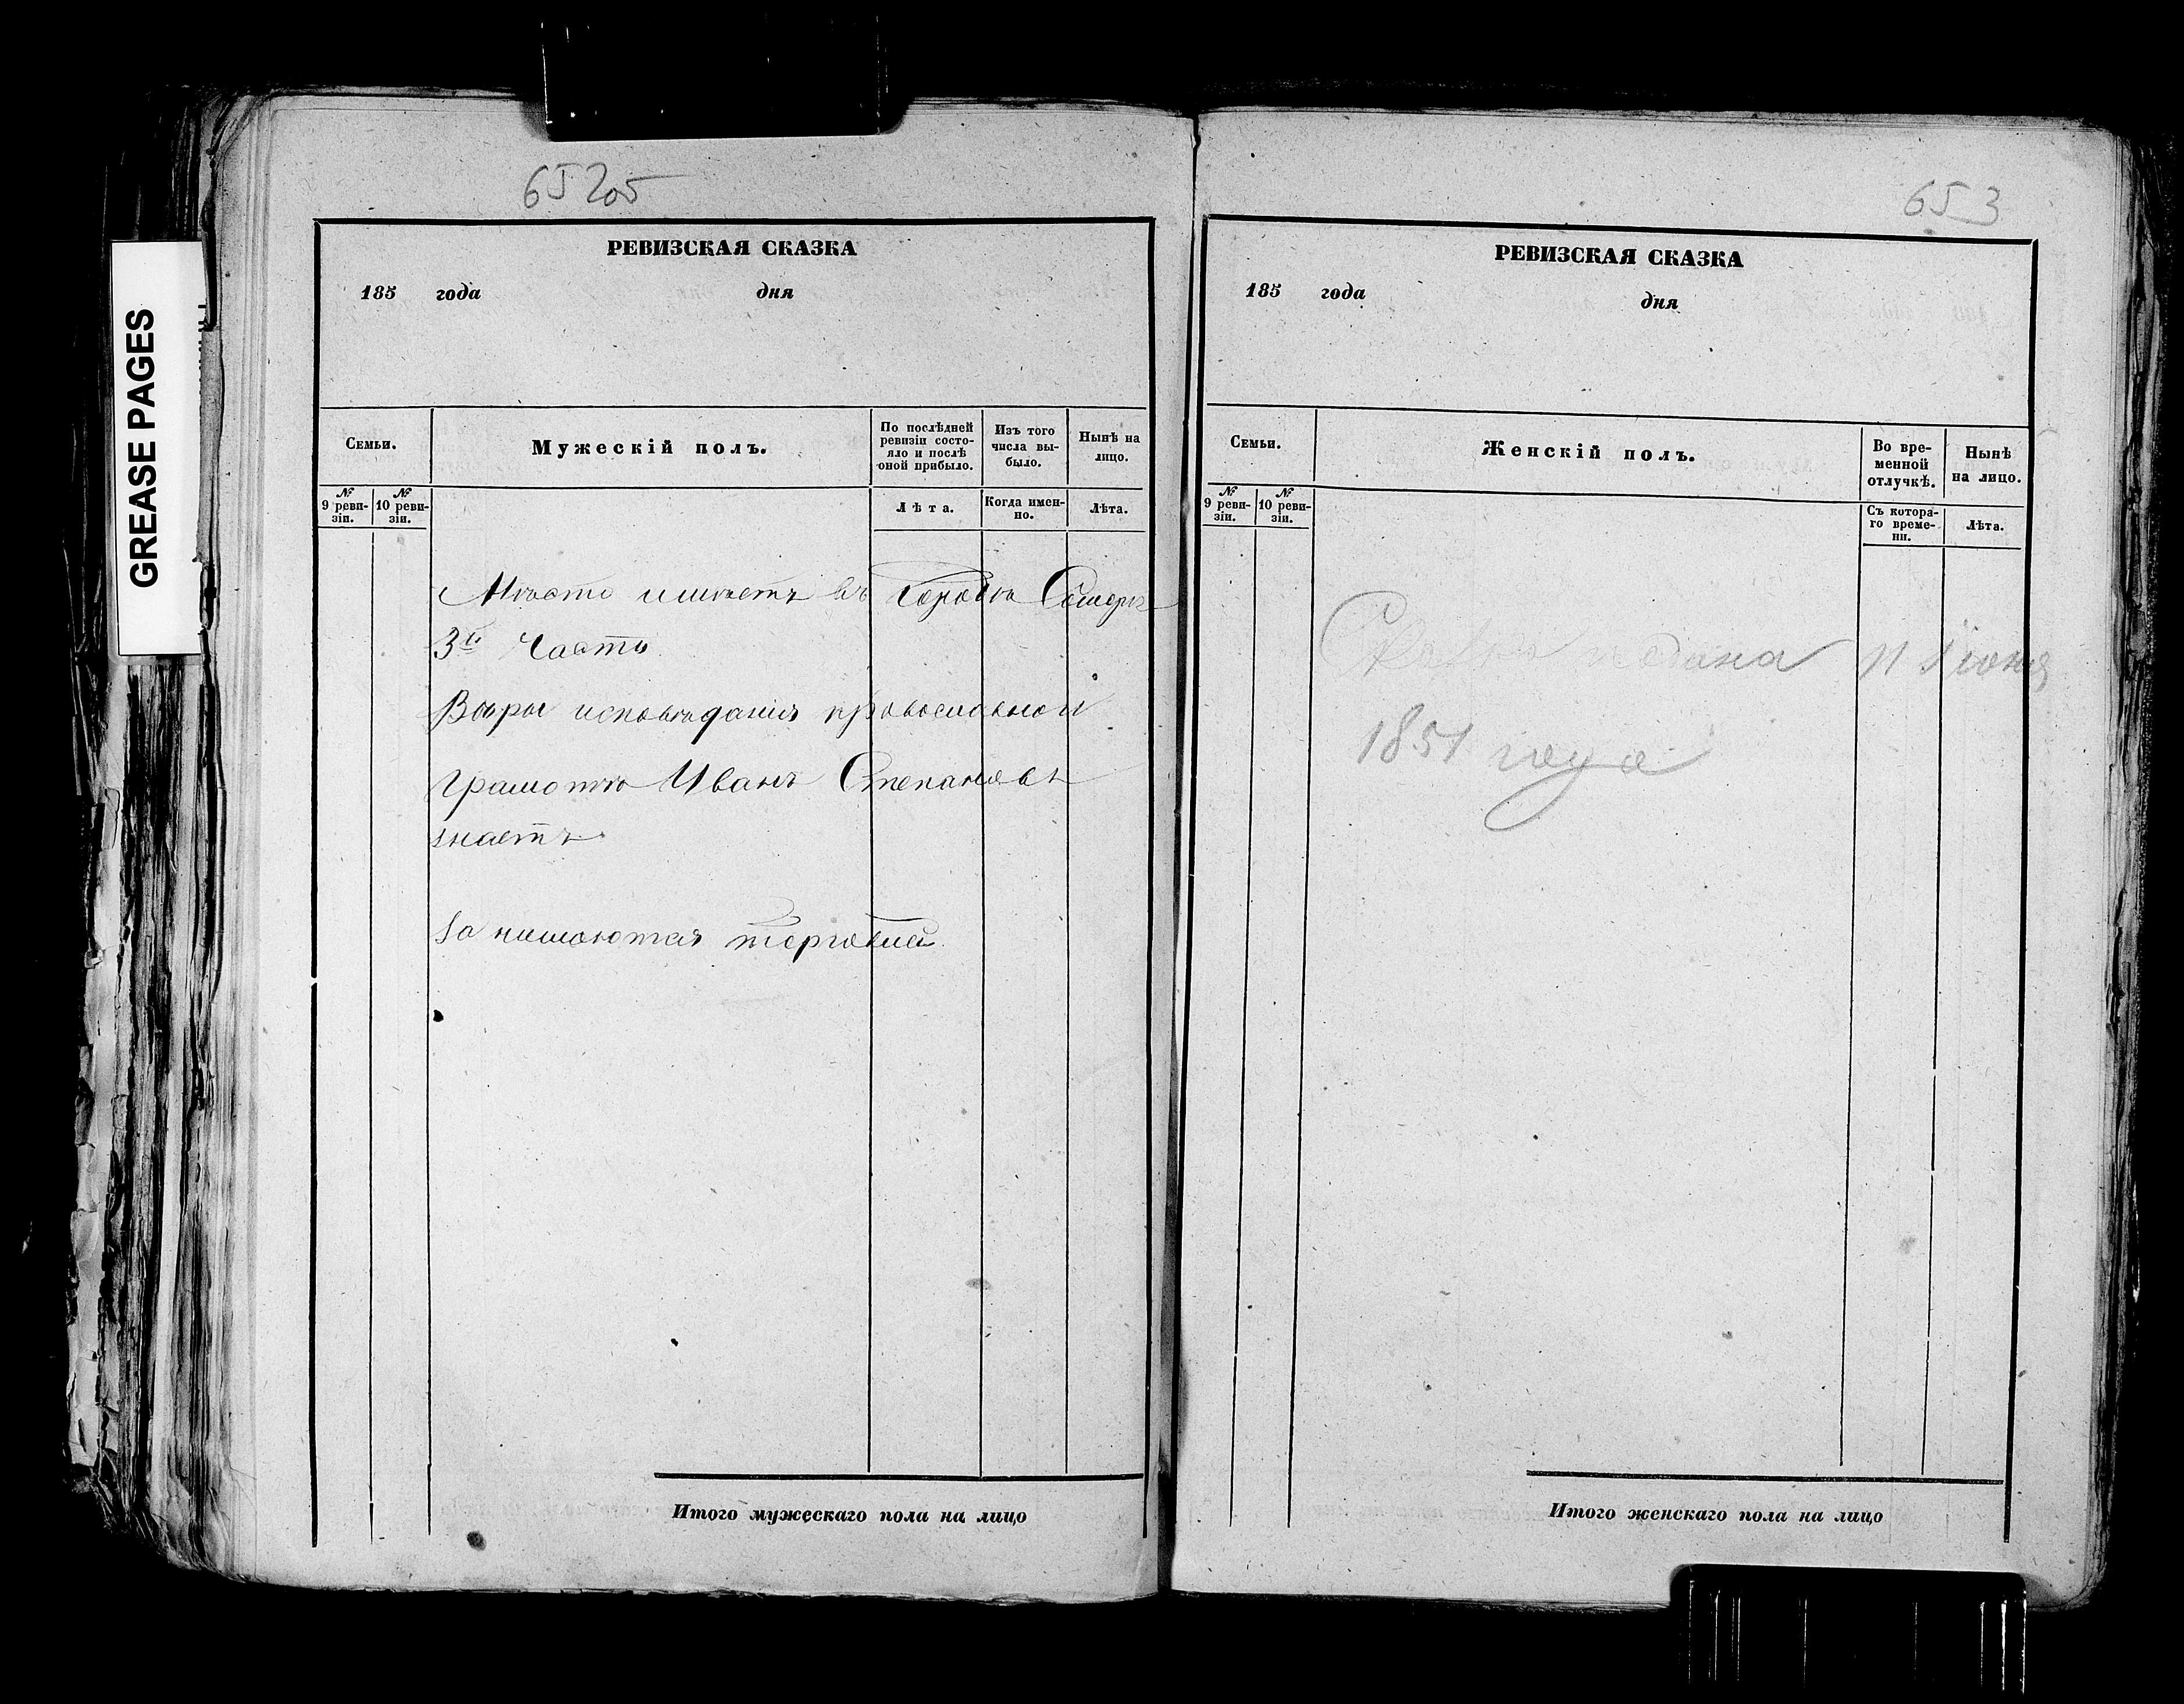 GREASE PAGES
652об
РЕВИЗСКАЯ СКАЗКА
185 года дня
Семьи.
Мужескій полъ.
По послѣдней ревизіи состо-
яло и послѣ
оной прибыло.
Изъ того
числа вы-
было.
Нынѣ на
лицо.
№ 9 реви-
зіи.
№ 10 реви-
зіи.
Лѣта.
Когда имен-
но.
Лѣта.
Место имеетъ въ городе Самаре
3й часть
Веры исповеданія православной
грамоте Иванъ Степановъ
знаетъ
занимаются торговлей.
Итого мужескаго пола на лицо
653
РЕВИЗСКАЯ СКАЗКА
185 года дня
Семьи.
Женскій полъ.
Во вре-
менной
отлучкѣ.
Нынѣ
на лицо.
№ 9 реви-
зіи.
№ 10 реви-
зіи.
Съ котора-
го време-
ни.
Лѣта.
подана 11 Іюня
1851 года
Итого женскаго пола на лицо